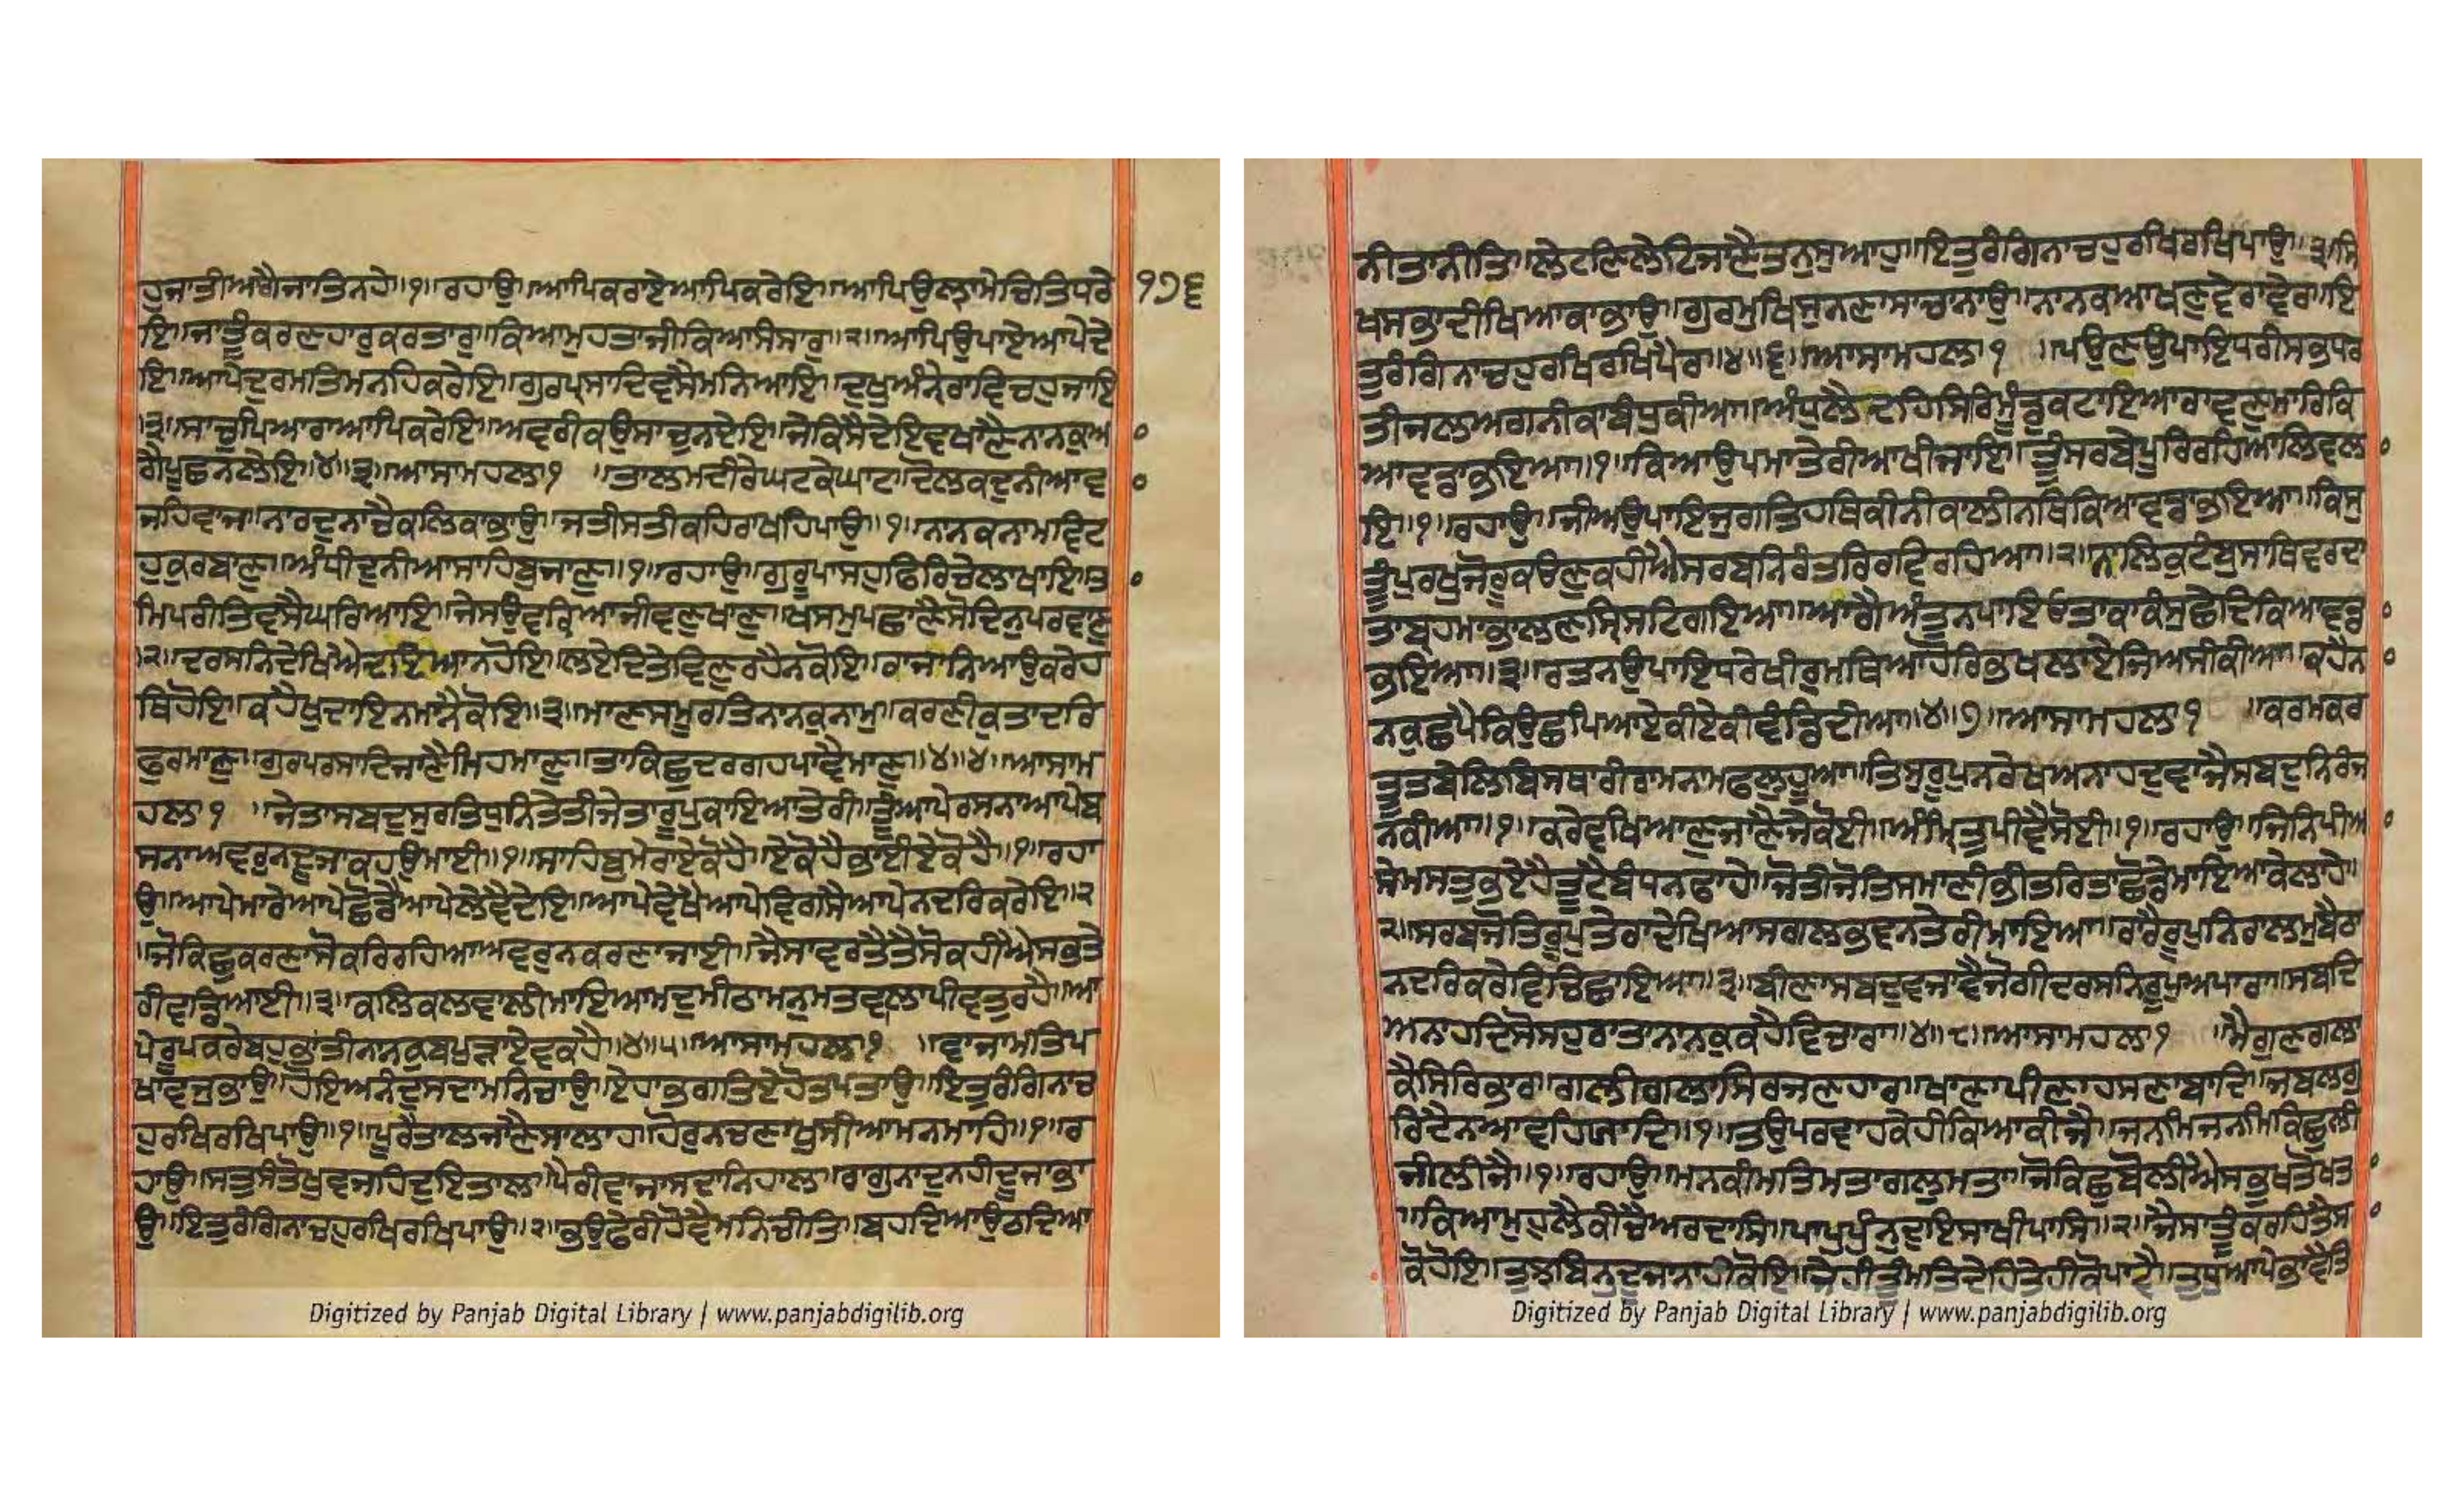 ਹੁਜਾਤੀਅਗੈਜਾਤਿਨਹੇ॥੧॥ਰਹਾਉ॥ਆਪਿਕਰਾਏਆਪਿਕਰੇਇ॥ਆਪਿਉਲਾਮੇਚਿਤਿਧਰੇ
੧੭੬
ਇ॥ਜਾਤੂੰਕਰਣਹਾਰੁਕਰਤਾਰੁ॥ਕਿਆਮੁਹਤਾਜੀਕਿਆਸੰਸਾਰੁ॥੨॥ਆਪਿਉਪਾਏਆਪੇਦੇ
ਇ॥ਆਪੇਦੁਰਮਤਿਮਨਹਿਕਰੇਇ॥ਗੁਰਪ੍ਰਸਾਦਿਵਸੈਮਨਿਆਇ॥ਦੁਖੁਅੰਨ੍ਹੇਰਾਵਿਚਹੁਜਾਇ
॥੩॥ਸਾਚੁਪਿਆਰਾਆਪਿਕਰੇਇ॥ਅਵਰੀਕਉਸਾਚੁਨਦੇਇ॥ਜੇਕਿਸੈਦੇਇਵਖਾਣੈਨਾਨਕੁਆ
ਗੈਪੂਛਨਲੇਇ॥੪॥੩॥ਆਸਾਮਹਲਾ੧ ॥ਤਾਲਮਦੀਰੇਘਟਕੇਘਾਟ॥ਦੋਲਕਦੁਨੀਆਵ
ਜਹਿਵਾਜ॥ਨਾਰਦੁਨਾਚੈਕਲਿਕਾਭਾਉ॥ਜਤੀਸਤੀਕਹਿਰਾਖਹਿਪਾਉ॥੧॥ਨਾਨਕਨਾਮਵਿਟ
ਹੁਕੁਰਬਾਣੁ॥ਅੰਧੀਦੁਨੀਆਸਾਹਿਬੁਜਾਣੁ॥੧॥ਰਹਾਉ॥ਗੁਰੂਪਾਸਹੁਫਿਰਿਚੇਲਾਖਾਇ॥ਤਾ
ਮਿਪਰੀਤਿਵਸੈਘਰਿਆਇ॥ਜੇਸਉਵਰ੍ਹਿਆਜੀਵਣੁਖਾਣੁ॥ਖਸਮੁਪਛਾਣੈਸੋਦਿਨੁਪਰਵਾਣੁ
॥੨॥ਦਰਸਨਿਦੇਖਿਐਦਇਆਨਹੋਇ॥ਲਏਦਿਤੇਵਿਣੁਰਹੈਨਕੋਇ॥ਰਾਜਾਨਿਆਉਕਰੇਹ
ਥਿਹੋਇ॥ਕਹੈਖੁਦਾਇਨਮਾਨੈਕੋਇ॥੩॥ਮਾਣਸਮੂਰਤਿਨਾਨਕੁਨਾਮੁ॥ਕਰਣੀਕੁਤਾਦਰਿ
ਫੁਰਮਾਣੁ॥ਗੁਰਪਰਸਾਦਿਜਾਣੈਮਿਹਮਾਣੁ॥ਤਾਕਿਛੁਦਰਗਹਪਾਵੈਮਾਣੁ॥੪॥੪॥ਆਸਾਮ
ਹਲਾ੧ ॥ਜੇਤਾਸਬਦੁਸੁਰਤਿਧੁਨਿਤੇਤੀਜੇਤਾਰੂਪੁਕਾਇਆਤੇਰੀ॥ਤੂੰਆਪੇਰਸਨਾਆਪੇਬ
ਸਨਾਅਵਰੁਨਦੂਜਾਕਹਉਮਾਈ॥੧॥ਸਾਹਿਬੁਮੇਰਾਏਕੋਹੈ॥ਏਕੋਹੈਭਾਈਏਕੋਹੈ॥੧॥ਰਹਾ
ਉ॥ਆਪੇਮਾਰੇਆਪੇਛੋਡੈਆਪੇਲੇਵੈਦੇਇ॥ਆਪੇਵੇਖੈਆਪੇਵਿਗਸੈਆਪੇਨਦਰਿਕਰੇਇ॥੨
॥ਜੋਕਿਛੁਕਰਣਾਸੋਕਰਿਰਹਿਆਅਵਰੁਨਕਰਣਾਜਾਈ॥ਜੈਸਾਵਰਤੈਤੈਸੋਕਹੀਐਸਭਤੇ
ਰੀਵਡਿਆਈ॥੩॥ਕਲਿਕਲਵਾਲੀਮਾਇਆਮਦੁਮੀਠਾਮਨੁਮਤਵਾਲਾਪੀਵਤੁਰਹੈ॥ਆ
ਪੇਰੂਪਕਰੇਬਹੁਭਾਤੀਨਾਨਕੁਬਪੁੜਾਏਵਕਹੈ॥੪॥੫॥ਆਸਾਮਹਲਾ੧ ॥ਵਾਜਾਮਤਿਪ
ਖਾਵਜੁਭਾਉ॥ਹੋਇਅਨੰਦੁਸਦਾਮਨਿਚਾਉ॥ਏਹਾਭਗਤਿਏਹੋਤਪਤਾਉ॥ਇਤੁਰੰਗਿਨਾਚ
ਹੁਰਖਿਰਖਿਪਾਉ॥੧॥ਪੂਰੇਤਾਲਜਾਣੈਸਾਲਾਹ॥ਹੋਰੁਨਚਣਾਖੁਸੀਆਮਨਮਾਹਿ॥੧॥ਰ
ਹਾਉ॥ਸਤੁਸੰਤੋਖੁਵਜਹਿਦੁਇਤਾਲ॥ਪੈਰੀਵਾਜਾਸਦਾਨਿਹਾਲ॥ਰਾਗੁਨਾਦੁਨਹੀਦੂਜਾਭਾ
ਉ॥ਇਤੁਰੰਗਿਨਾਚਹੁਰਖਿਰਖਿਪਾਉ॥੨॥ਭਉਫੇਰੀਹੋਵੈਮਨਿਚੀਤਿ॥ਬਹਦਿਆਉਠਦਿਆ
Digitized by Panjab Digital Library | www.panjabdigilib.org
ਨੀਤਾਨੀਤਿ॥ਲੇਟਣਿਲੇਟਿਜਾਣੈਤਨੁਸੁਆਹੁ॥ਇਤੁਰੰਗਿਨਾਚਹੁਰਖਿਰਖਿਪਾਉ॥੩॥ਸਿ
ਖਸਭਾਦੀਖਿਆਕਾਭਾਉ॥ਗੁਰਮੁਖਿਸੁਨਣਾਸਾਚਨਾਉ॥ਨਾਨਕਆਖਣੁਵੇਰਾਵੇਰਾ॥ਇ
ਤੁਰੰਗਿਨਾਚਹੁਰਖਿਰਖਿਪੈਰਾ॥੪॥੬॥ਆਸਾਮਹਲਾ੧ ॥ਪਉਣੁਉਪਾਇਧਰੀਸਭਧਰ
ਤੀਜਲਅਗਨੀਕਾਬੰਧੁਕੀਆ॥ਅੰਧੁਲੈਦਹਿਸਿਰਿਮੂੰਡੁਕਟਾਇਆਰਾਵਣੁਮਾਰਿਕਿ
ਆਵਡਾਭਇਆ॥੧॥ਕਿਆਉਪਮਾਤੇਰੀਆਖੀਜਾਇ॥ਤੂੰਸਰਬੇਪੂਰਿਰਹਿਆਲਿਵਲਾ
ਇ॥੧॥ਰਹਾਉ॥ਜੀਅਉਪਾਇਜੁਗਤਿਹਥਿਕੀਨੀਕਾਲੀਨਥਿਕਿਆਵਡਾਭਇਆ॥ਕਿਸੁ
ਤੂੰਪੁਰਖੁਜੋਰੂਕਉਣੁਕਹੀਐਸਰਬਨਿਰੰਤਰਿਰਵਿਰਹਿਆ॥੨॥ਨਾਲਿਕੁਟੰਬੁਸਾਥਿਵਰਦਾ
ਤਾਬ੍ਰਹਮਾਭਾਲਣਸ੍ਰਿਸਟਿਗਇਆ॥ਆਗੈਅੰਤੁਨਪਾਇਓਤਾਕਾਕੰਸੁਛੇਦਿਕਿਆਵਡਾ
ਭਇਆ॥੩॥ਰਤਨਉਪਾਇਧਰੇਖੀਰੁਮਥਿਆਹੋਰਿਭਖਲਾਏਜਿਅਸੀਕੀਆ॥ਕਹੈਨਾ
ਨਕੁਛਪੈਕਿਉਛਪਿਆਏਕੀਏਕੀਵੰਡਿਦੀਆ॥੪॥੭॥ਆਸਾਮਹਲਾ੧ ॥ਕਰਮਕਰ
ਤੂਤਬੇਲਿਬਿਸਥਾਰੀਰਾਮਨਾਮਫਲੁਹੂਆ॥ਤਿਸੁਰੂਪੁਨਰੇਖਅਨਾਹਦੁਵਾਜੈਸਬਦੁਨਿਰੰਜ
ਨਕੀਆ॥੧॥ਕਰੇਵਖਿਆਣੁਜਾਣੈਜੇਕੋਈ॥ਅੰਮ੍ਰਿਤੁਪੀਵੈਸੋਈ॥੧॥ਰਹਾਉ॥ਜਿਨਿਪੀਆ
ਸੇਮਸਤਭਏਹੈਤੂਟੇਬੰਧਨਫਾਹੇ॥ਜੋਤੀਜੋਤਿਸਮਾਣੀਭੀਤਰਿਤਾਛੋਡੇਮਾਇਆਕੇਲਾਹੇ॥
੨॥ਸਰਬਜੋਤਿਰੂਪੁਤੇਰਾਦੇਖਿਆਸਗਲਭਵਨਤੇਰੀਮਾਇਆ॥ਰਾਰੈਰੂਪੁਨਿਰਾਲਮੁਬੈਠਾ
ਨਦਰਿਕਰੇਵਿਚਿਛਾਇਆ॥੩॥ਬੀਣਾਸਬਦੁਵਜਾਵੈਜੋਗੀਦਰਸਨਿਰੂਪੁਅਪਾਰਾ॥ਸਬਦਿ
ਅਨਾਹਦਿਸੋਸਹੁਰਾਤਾਨਾਨਕੁਕਹੈਵਿਚਾਰਾ॥੪॥੮॥ਆਸਾਮਹਲਾ੧ ॥ਮੈਗੁਣਗਲਾ
ਕੈਸਿਰਿਭਾਰ॥ਗਲੀਗਲਾਸਿਰਜਣਹਾਰ॥ਖਾਣਾਪੀਣਾਹਸਣਾਬਾਦਿ॥ਜਬਲਗੁ
ਰਿਦੈਨਆਵਹਿਯਾਦਿ॥੧॥ਤਉਪਰਵਾਹਕੇਹੀਕਿਆਕੀਜੈ॥ਜਨਮਿਜਨਮਿਕਿਛੁਲੀ
ਜੀਲੀਜੈ॥੧॥ਰਹਾਉ॥ਮਨਕੀਮਤਿਮਤਾਗਲੁਮਤਾ॥ਜੋਕਿਛੁਬੋਲੀਐਸਭੁਖਤੋਖਤਾ
॥ਕਿਆਮੁਹੁਲੈਕੀਚੈਅਰਦਾਸਿ॥ਪਾਪੁਪੁੰਨੁਦੁਇਸਾਖੀਪਾਸਿ॥੨॥ਜੈਸਾਤੂੰਕਰਹਿਤੈਸਾ
ਕੋਹੋਇ॥ਤੁਝਬਿਨੁਦੂਜਾਨਾਹੀਕੋਇ॥ਜੇਹੀਤੂੰਮਤਿਦੇਹਿਤੇਹੀਕੋਪਾਵੈ॥ਤੁਧੁਆਪੇਭਾਵੈਤਿ
Digitized by Panjab Digital Library | www.panjabdigilib.org